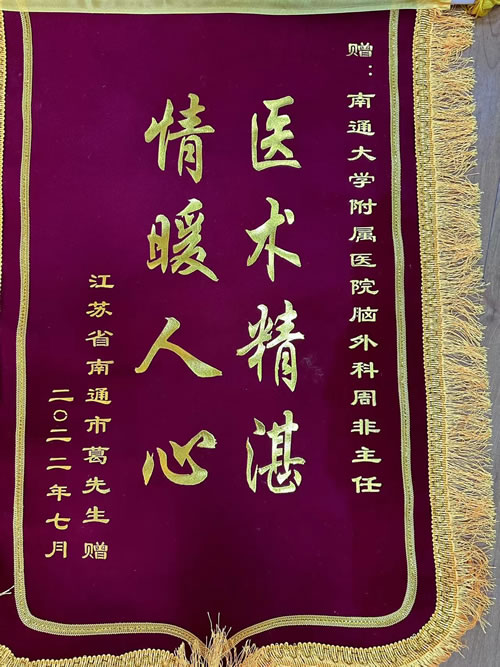 赠：南通大学附属医院脑外科周非主任
医术精湛
情暖人心
江苏省南通市葛先生 赠
二〇二二年七月